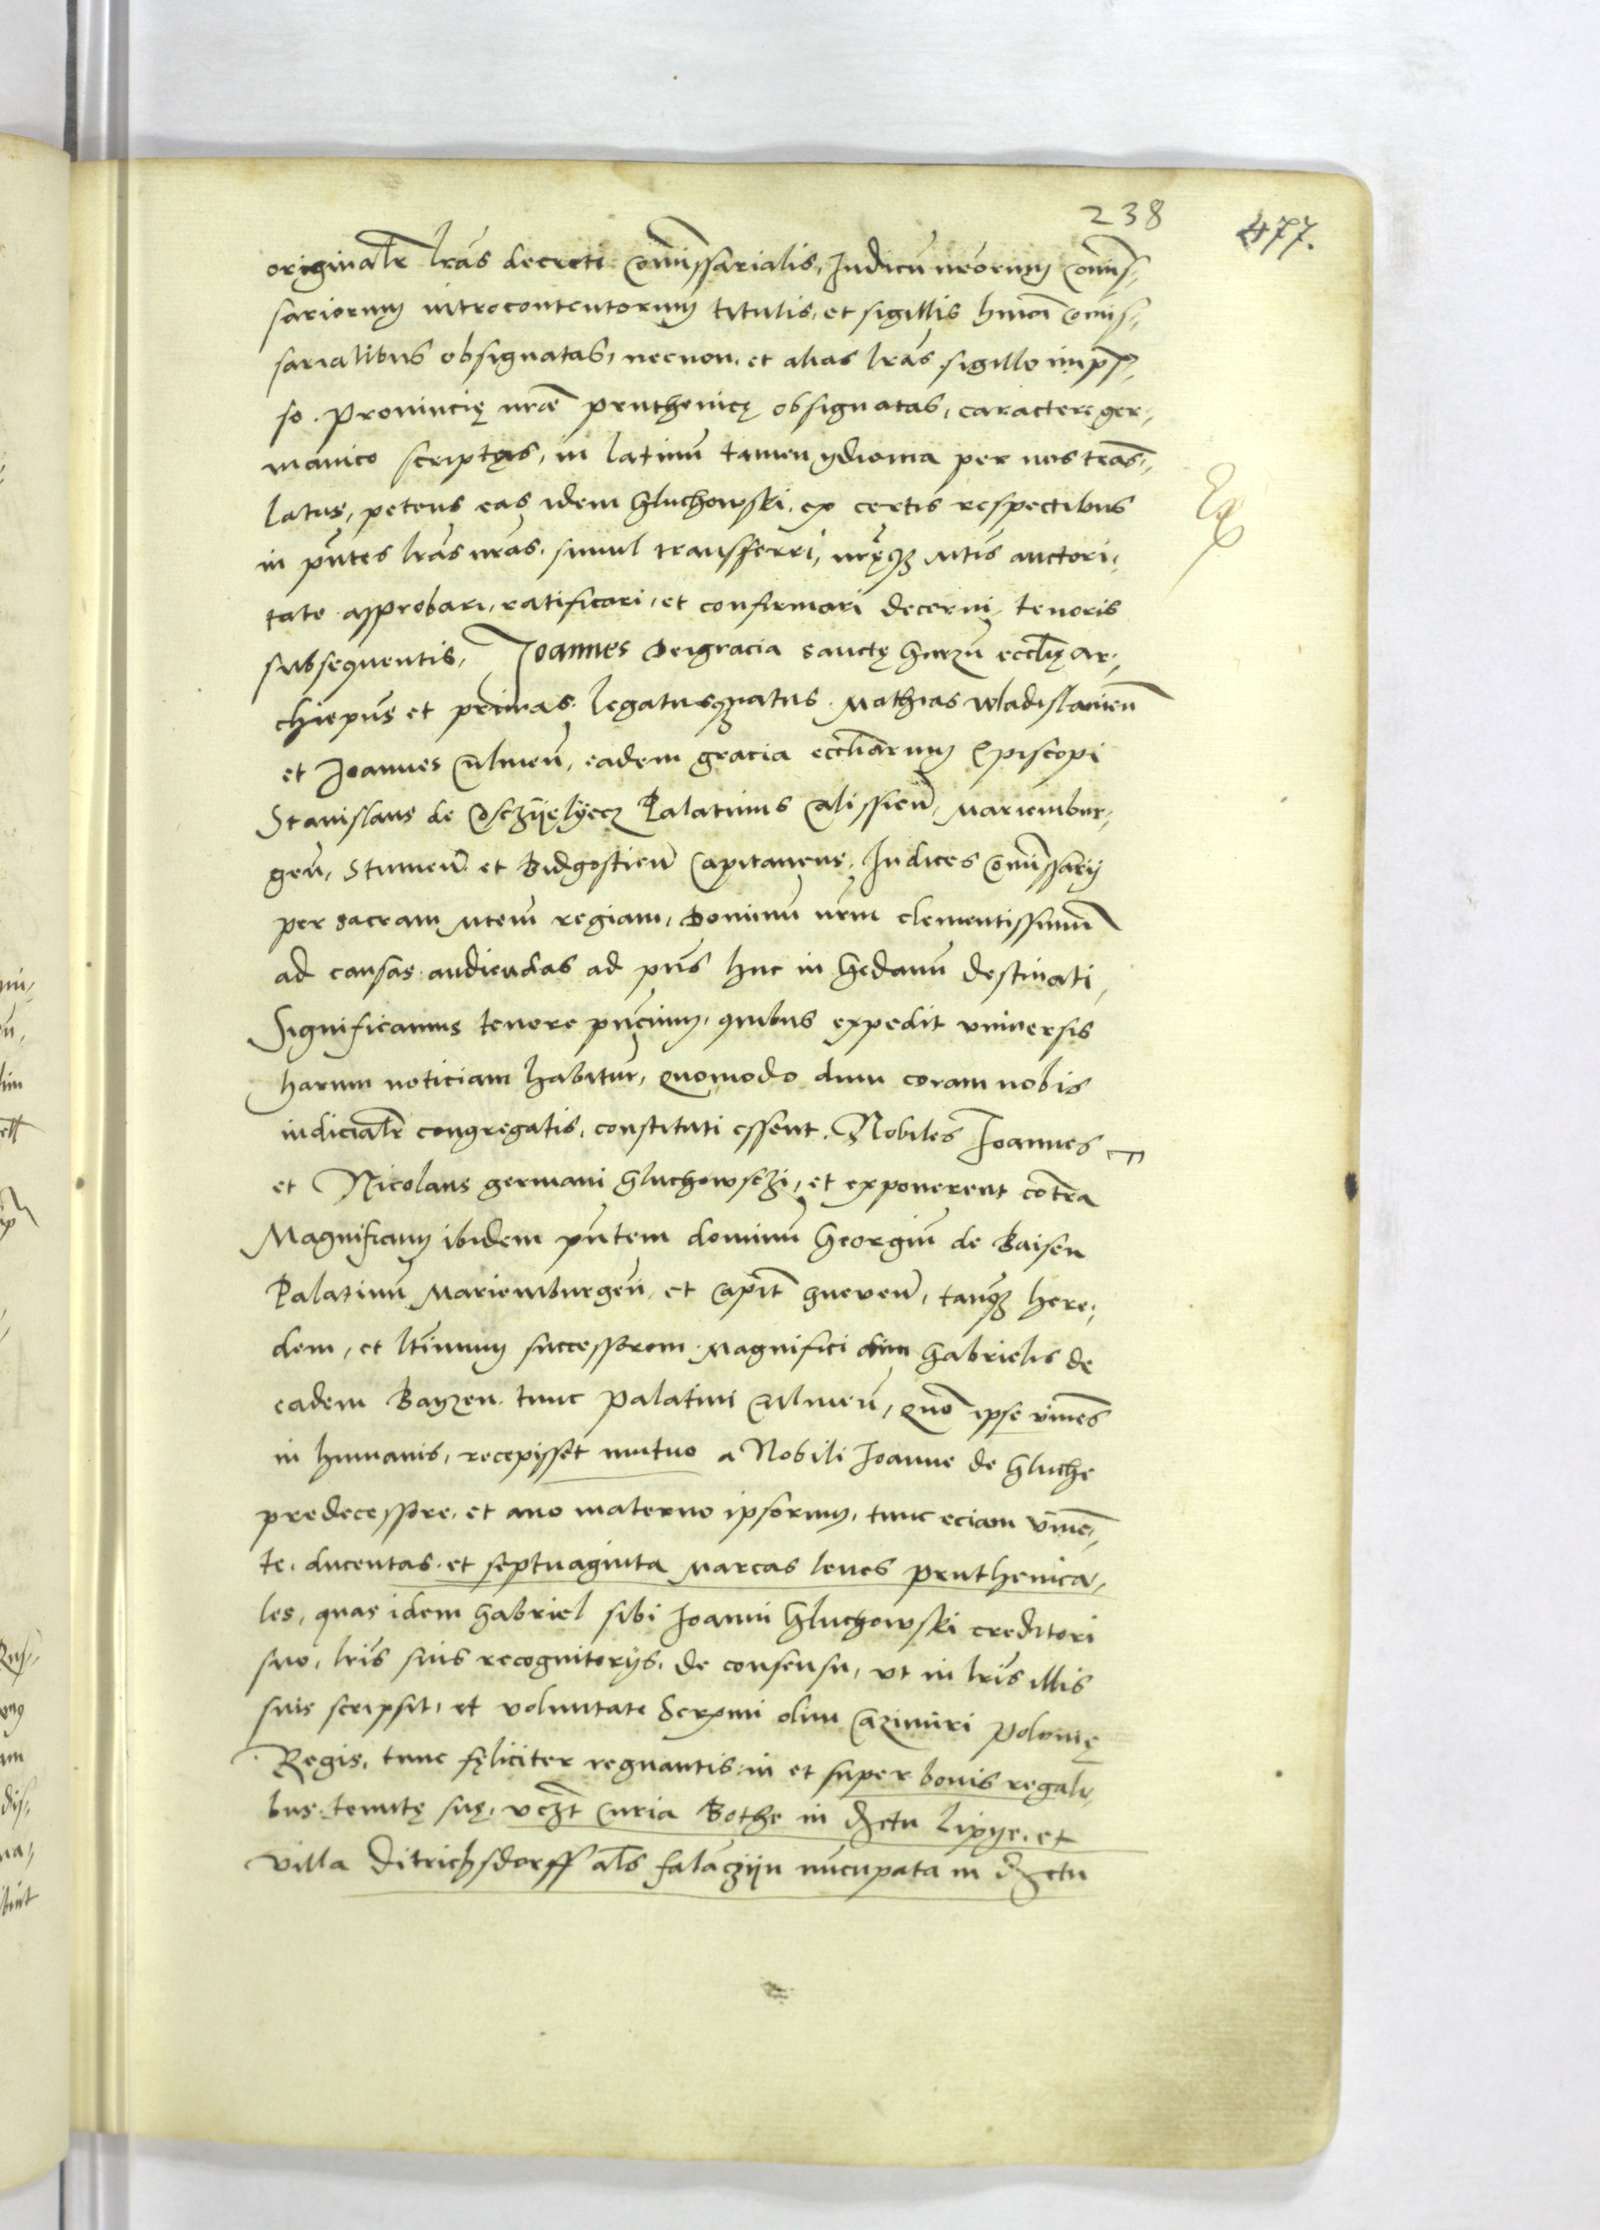 238
477.
originalr lras decreti Comissarialis, Judicu nrorum Comis-
sariorum introcontentorum titulis, et sigillis hmoi Comis-
sarialibus obsignatas, necnon et alias lras sigillo imp̄s-
so Provincię nrae pruthenicę obsignatas, caractere ger-
manico scriptas, in latinū tamen ydioma per nos trās-
latas, petens eas idem Gluchowski ex certis respectibus
in pntes lras nras simul transferri, nręq3 Mtis auctori-
tate approbari, ratificari, et confirmari decerni tenoris
subsequentis, Joannes Deigracia sanctę Gnezn̄ eccl̄ię ar-
chiepus et primas legatusq3 natus Mathias Wladislavien̄
et Joannes Culmen̄, eadem gracia eccliarum Episcopi
Stanislaus de Coscziyelyecz Palatinus Calissien̄, Mariembur-
gen̄, Stumen̄ et Bidgostien̄ Capitaneus, Judices Comissarij
per sacram Mtem regiam, Dominū nrm clementissimū
ad causas audiendas ad pns huc in Gedanū destinati,
Significamus tenore pncium, quibus expedit universis
harum noticiam habitur, quomodo dum coram nobis
iudicialr congregatis, constituti essent Nobiles Joannes
et Nicolaus germani Gluchowsczi, et exponerent cōtra
Magnificum ibidem pntem dominū Georgiū de Baisen
Palatinū Mariemburgen̄, et Capit Gneven̄, tanq3 here-
dem, et ltimum successorem Magnifici olim Gabrielis de
eadem Bayzen tunc Palatini Culmen̄, quō ipse vivēs
in humanis, recepisset mutuo a Nobili Joanne de Gluche
predecessore, et avo materno ipsorum, tunc eciam vivē-
te, ducentas et septuaginta Marcas leves pruthenica-
les, quas idem Gabriel sibi Joanni Gluchowski creditori
suo, lris suis recognitorijs, de consensu, ut in lris illis
suis scripsit, et voluntate Serxmi olim Cazimiri Polonię
Regis, tunc fęliciter regnantis, in et super bonis regali-
bus tenutę suę, vczt Curia Bothe in Dctu Lipye, et
villa Ditrichsdorff als falączijn nūcupata in Dctu